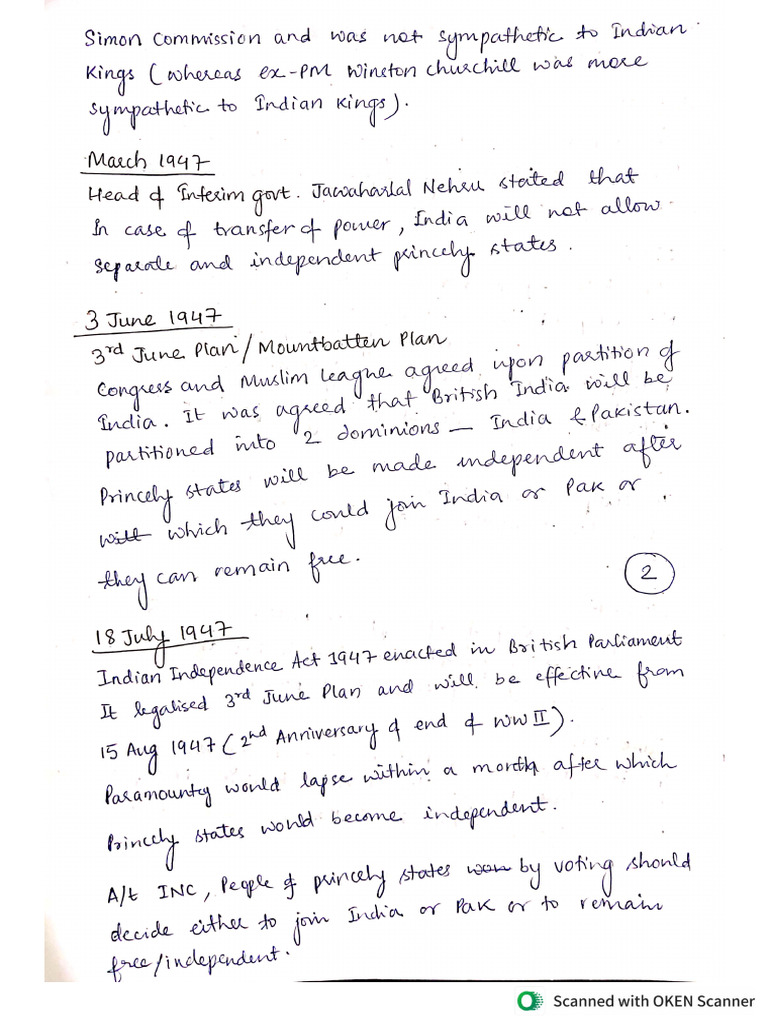 Simon Commission and was not sympathetic to Indian
Kings (whereas ex-PM Winston Churchill was more
sympathetic to Indian Kings).
March 1947
Head of Interim govt. Jawaharlal Nehru stated that
In case of transfer of power, India will not allow
separate and independent princely states.
3 June 1947
3rd June Plan/Mountbatten Plan
Congress and Muslim League agreed upon partition of
India. It was agreed that British India will be
partitioned into 2 dominions — India & Pakistan.
Princely states will be made independent after
will which they could join India or Pak or
they can remain free.
2
18 July 1947
Indian Independence Act 1947 enacted in British Parliament
It legalised 3rd June Plan and will be effective from
15 Aug 1947 (2nd Anniversary of end of WW II).
Paramountcy would lapse within a month after which
Princely states would become independent.
A/t INC, People of princely states won by voting should
decide either to join India or Pak or to remain
free/independent.
Scanned with OKEN Scanner